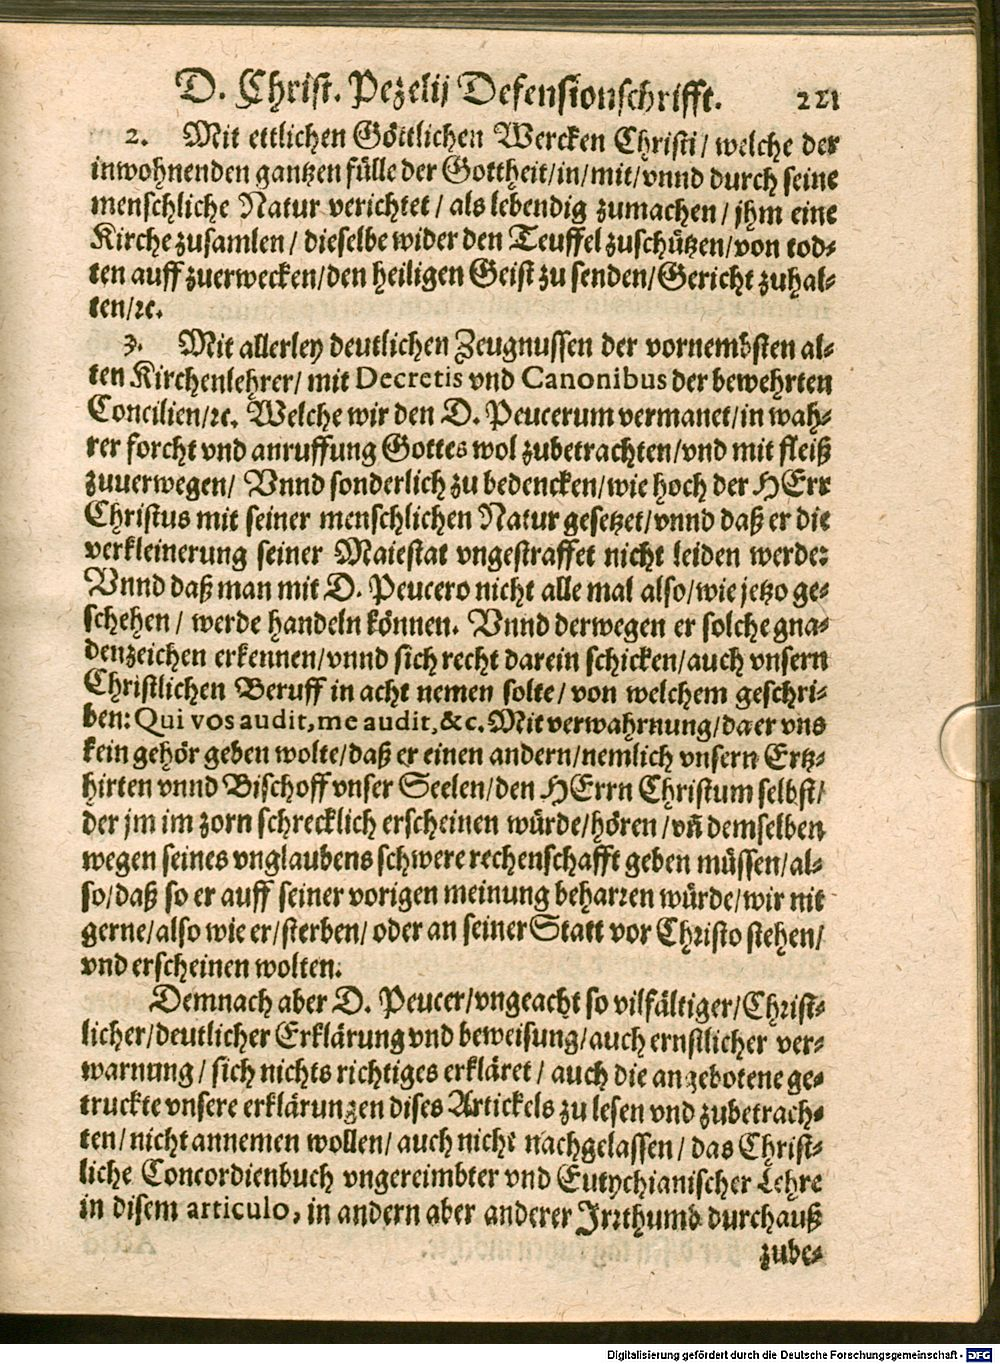 D. Christ. Pezelij Defensionschrifft. 221
2. Mit ettlichen Göttlichen Wercken Christi/ welche der
inwohnenden gantzen fülle der Gottheit/in/mit/vnnd durch seine
menschliche Natur verichtet/ als lebendig zumachen/ jhm eine
Kirche zusamlen/ dieselbe wider den Teuffel zuschützen/von tod-
ten auff zuerwecken/den heiligen Geist zu senden/Gericht zuhal-
ten/ꝛc.
3. Mit allerley deutlichen Zeugnussen der vornembsten al-
ten Kirchenlehrer/ mit Decretis vnd Canonibus der bewehrten
Concilien/ꝛc. Welche wir den D. Peucerum vermanet/in wah-
rer forcht vnd anruffung Gottes wol zubetrachten/vnd mit fleiß
zuuerwegen/ Vnnd sonderlich zu bedencken/wie hoch der HErr
Christus mit seiner menschlichen Natur gesetzet/vnnd daß er die
verkleinerung seiner Maiestat vngestraffet nicht leiden werde:
Vnnd daß man mit D. Peucero nicht alle mal also/wie jetzo ge-
schehen/ werde handeln können. Vnnd derwegen er solche gna-
denzeichen erkennen/vnnd sich recht darein schicken/auch vnsern
Christlichen Beruff in acht nemen solte/ von welchem geschri-
ben: Qui vos audit, me audit, &c. Mit verwahrnung/da er vns
kein gehör geben wolte/daß er einen andern/nemlich vnsern Ertz-
hirten vnnd Bischoff vnser Seelen/den HErrn Christum selbst/
der jm im zorn schrecklich erscheinen würde/hören/vñ demselben
wegen seines vnglaubens schwere rechenschafft geben müssen/al-
so/daß so er auff seiner vorigen meinung beharren würde/wir nit
gerne/also wie er/sterben/ oder an seiner Statt vor Christo stehen/
vnd erscheinen wolten.
Demnach aber D. Peucer/vngeacht so vilfältiger/Christ-
licher/deutlicher Erklärung vnd beweisung/auch ernstlicher ver-
warnung/ sich nichts richtiges erkläret/ auch die angebotene ge-
truckte vnsere erklärungen dises Artickels zu lesen vnd zubetrach-
ten/ nicht annemen wollen/ auch nicht nachgelassen/ das Christ-
liche Concordienbuch vngereimbter vnd Eutychianischer Lehre
in disem articulo, in andern aber anderer Irrthumb durchauß
zube-
Digitalisierung gefördert durch die Deutsche Forschungsgemeinschaft - DFG